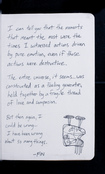 I can tell you that the moments
that meant the most were the
times I witnessed actions driven
by pure emotion, even if those
actions were destructive.
The entire universe, it seems, was
constructed as a feeling generator,
held together by a fragile thread
of love and compassion.
But then again, I
could be wrong.
I have been wrong
about so many things.